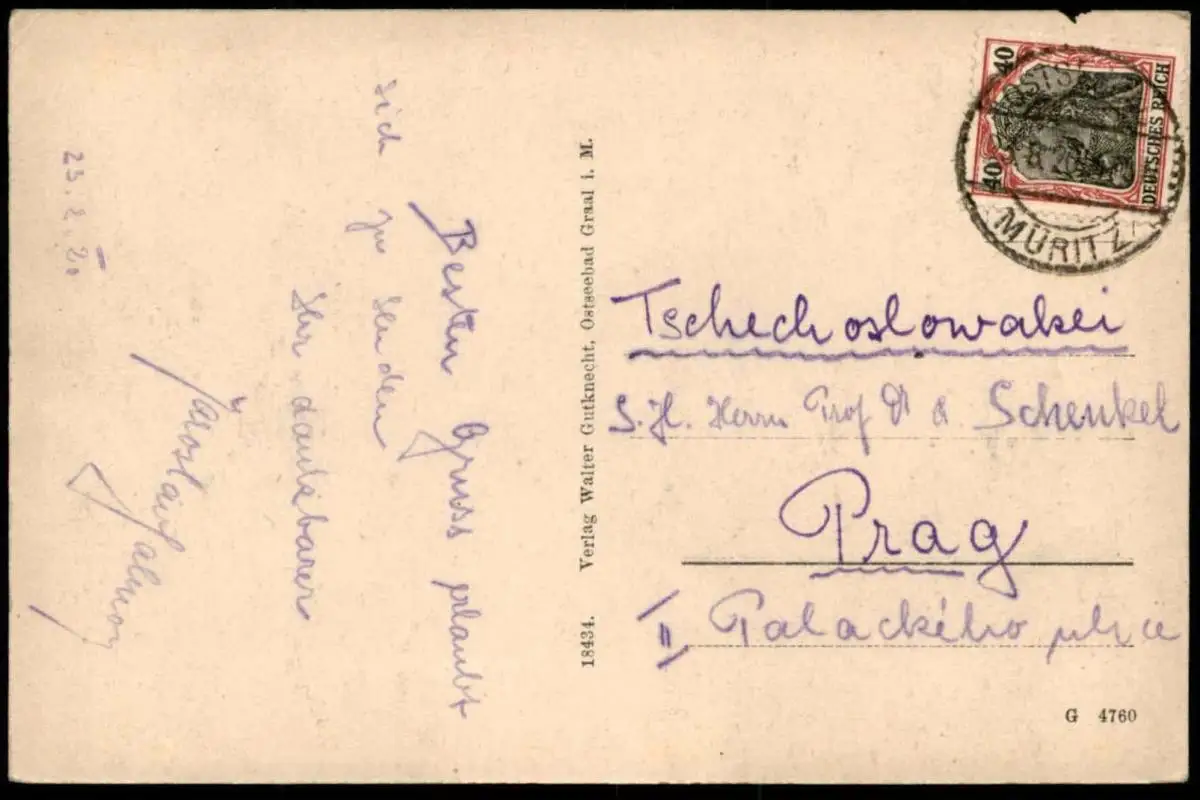 Besten Gruss erlaubt
sich zu senden
Ihr dankbarer
23. 8. 20.
18434. Verlag Walter Gutknecht, Ostseebad Graal i. M.
40 40
DEUTSCHES REICH
MÜRITZ
Tschechoslowakei
S. H. Herrn Prof Dr Schenkel
Prag
II
Palackého ulice
G 4760